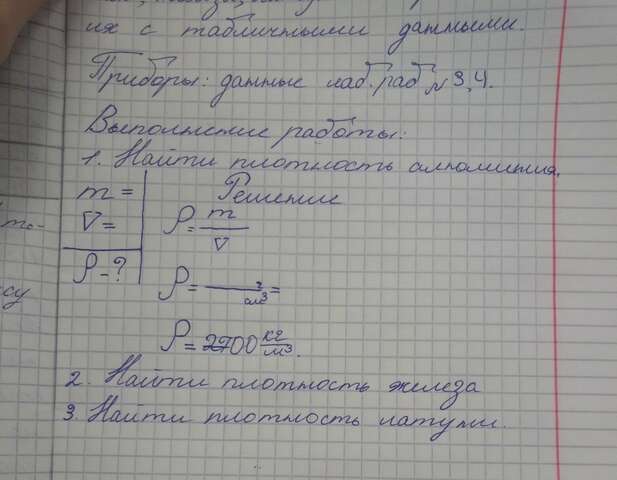 их с табличными данными.
Приборы: данные лаб. раб № 3, 4.
Выполнение работы:
1. Найти плотность алюминия.
m =
Решение
V =
ρ = m/V
ρ - ?
ρ = — г/см³ =
ρ = 2700 кг/м³.
2. Найти плотность железа
3. Найти плотность латуни.